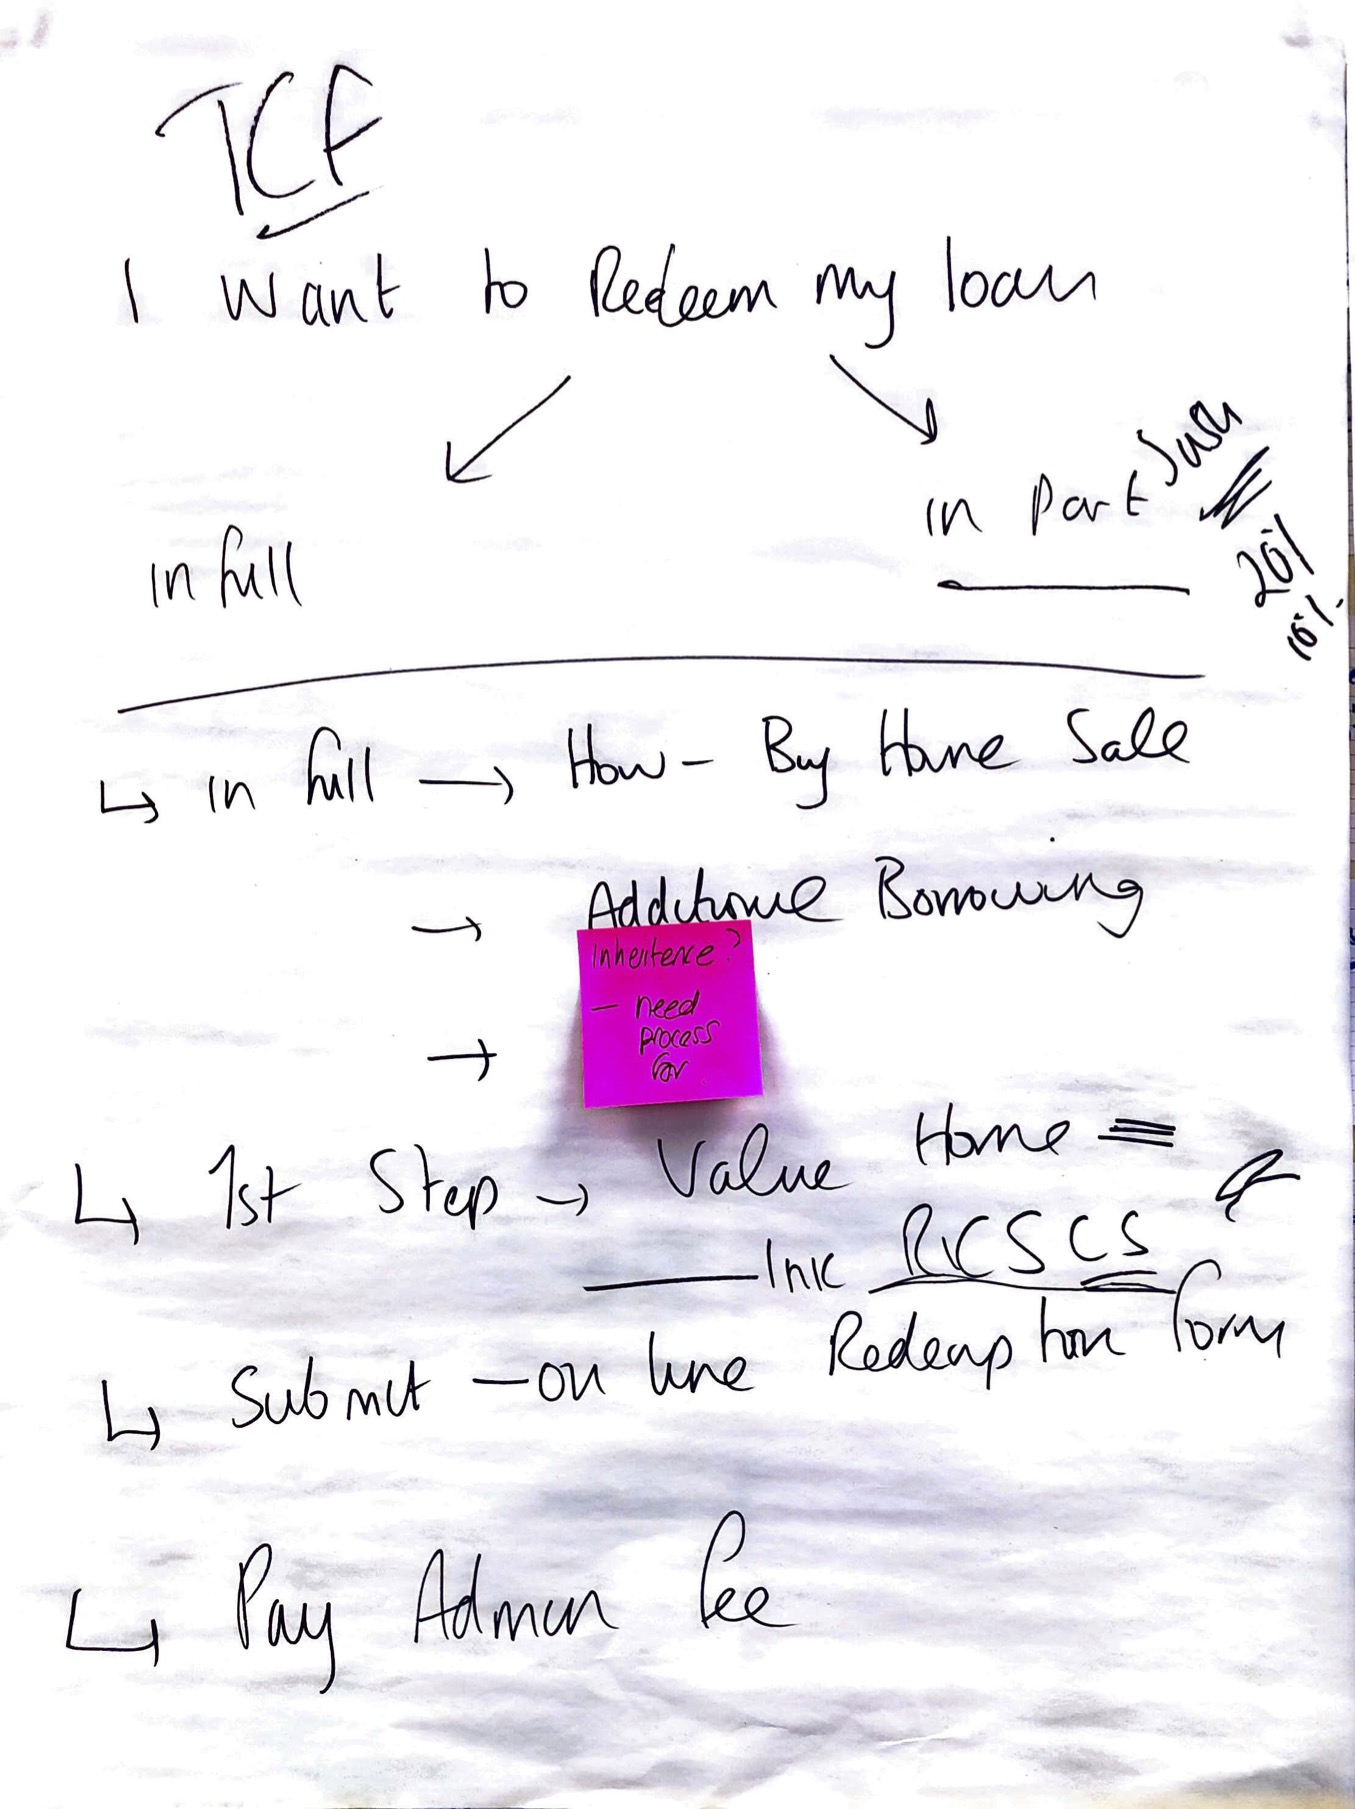 TCF
I want to Redeem my loan
in Part
20%
10%.
in full
in full → How - By Home Sale
→ Additional Borrowing
Inheritence?
→
- need
process
for
1st Step → Value Home
link RICS CS
Submit - on line Redemption form
Pay Admin fee